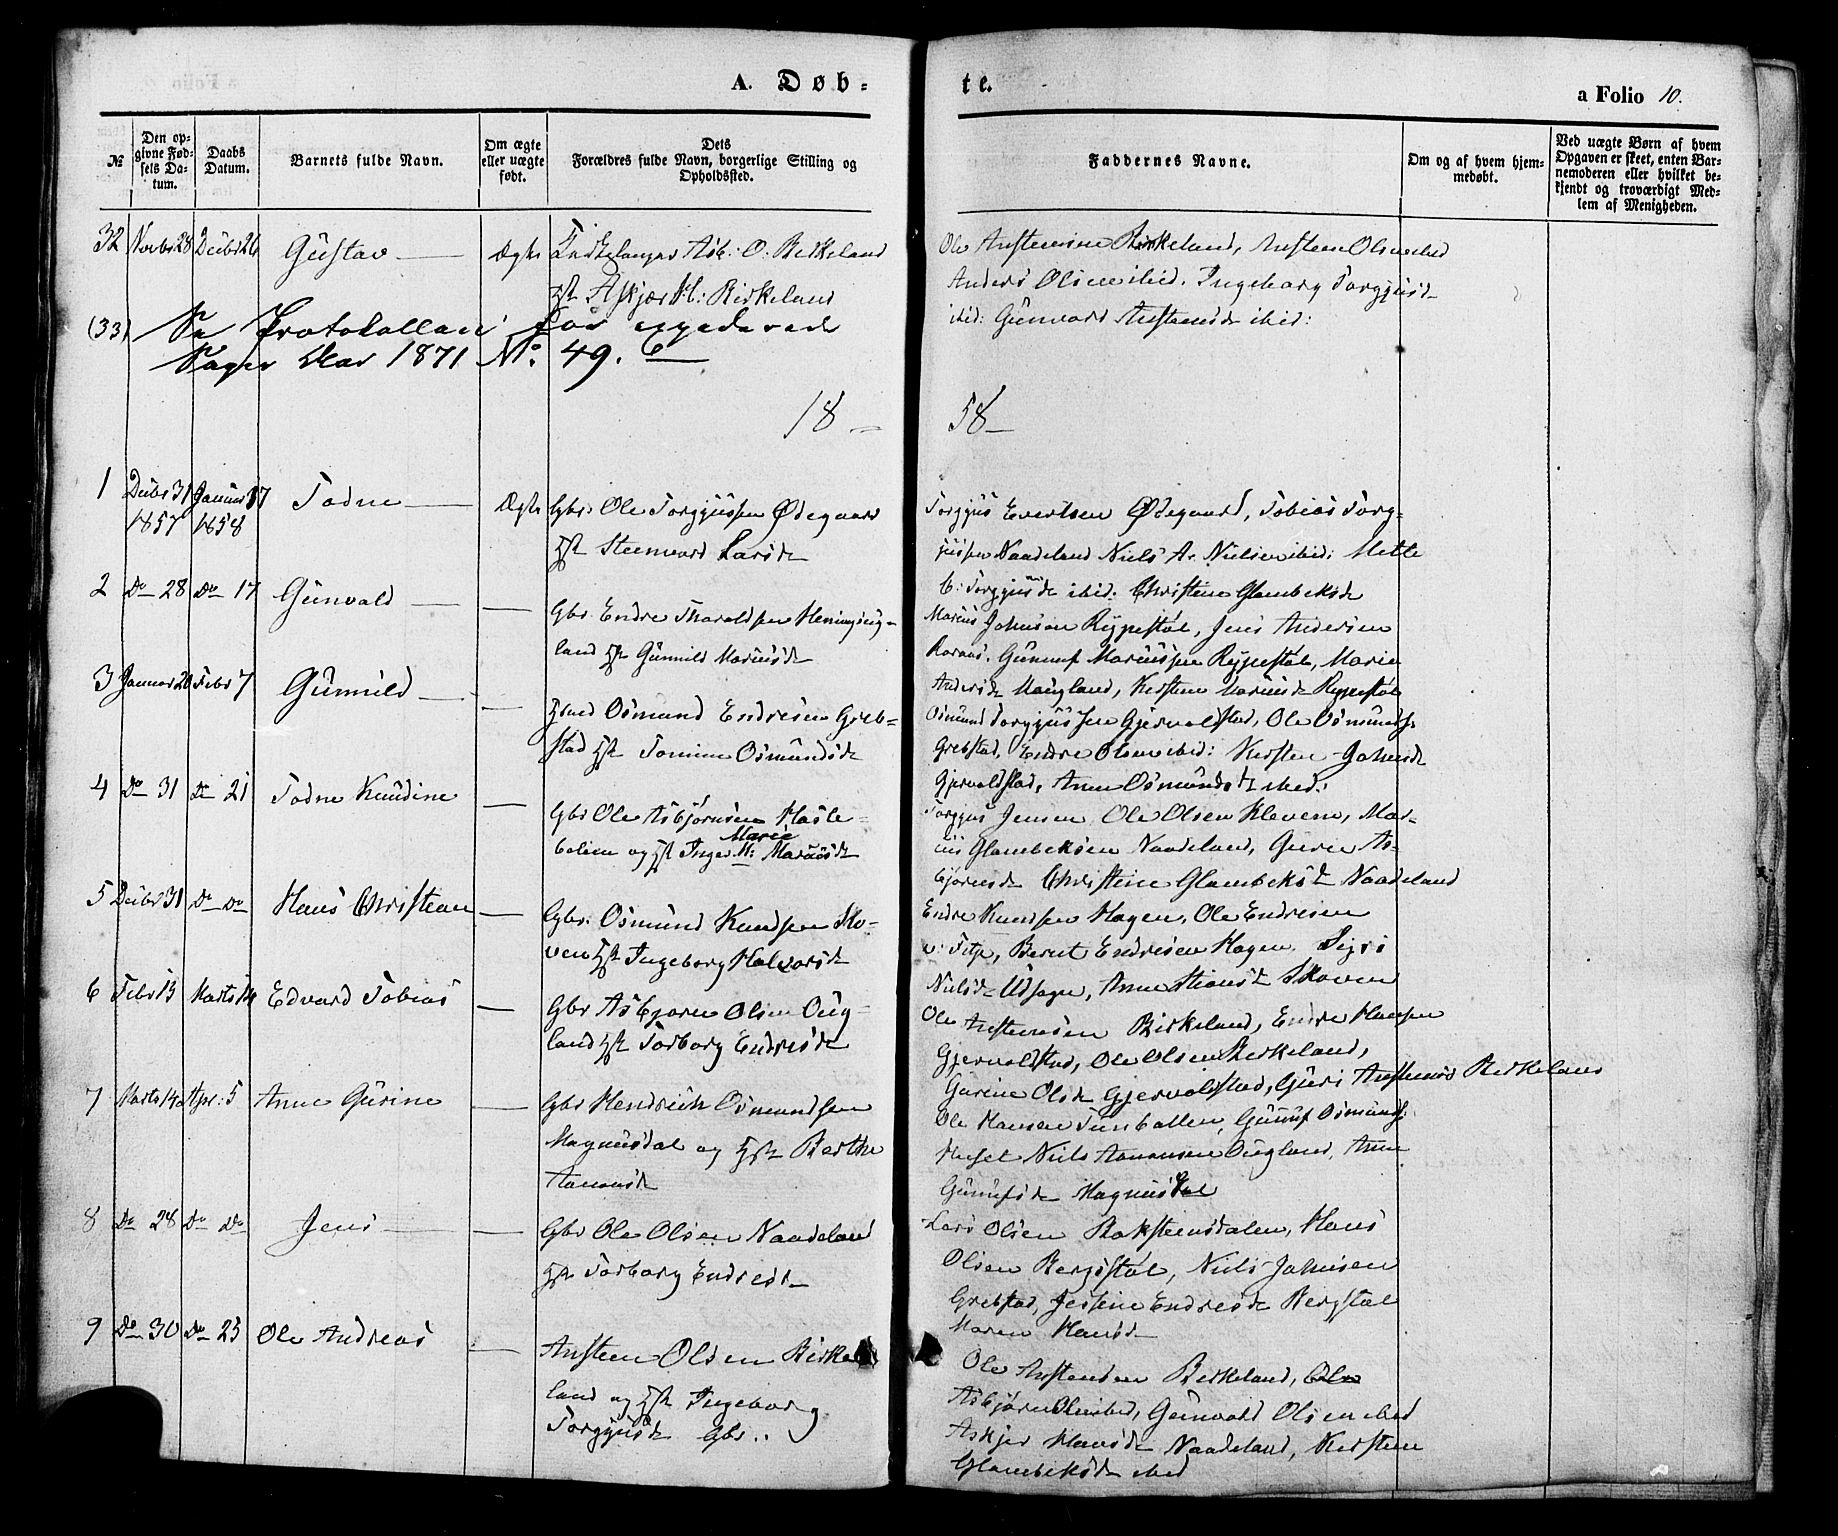 A. Døb-
te.
a Folio 10.
№
Den op-
givne Fød-
sels Da-
tum.
Daabs
Datum.
Barnets fulde Navn.
Om ægte
eller uægte
født.
Dets
Forældres fulde Navn, borgerlige Stilling og
Opholdssted.
Faddernes Navne.
Om og af hvem hjem-
medøbt.
Ved uægte Børn af hvem
Opgaven er skeet, enten Bar-
nemoderen eller hvilket be-
kjendt og troværdigt Med-
lem af Menigheden.
32 Novbr 28 Decbr 26 Gustav Ægte Asb: O: Birkeland
Hst Askjær H: Birkeland
Ole Anstensen Birkeland, Ansten Olsen ibid
Anders Olsen ibid. Ingeborg Torgjusd
ibid: Gunvord Anstensd ibid:
(33) Se Protokollen for expederede
Sager Aar 1871 No. 49.
18 58
1 Decbr 31 Januar 17 Todne Ægte Gbr: Ole Torgjussen Ødegaard
1857 1858 Hst Steenvord Larsd
Torgjus Evertsen Ødegaard, Tobias Torg-
jussen Naadeland Niels A. Nielsen ibid: Mette
C: Torgjusd ibid. Christine Glambeksd
2 Do 28 Do 17 Gunvald Gbr. Endre Tharaldsen
land Hst Gunnild Mariusd
Marius Johnsen Rypestøl, Jens Andersen
Gunuf Mariussen Rypestøl, Marie
Andersd Haugland, Kirsten Mariusd Rypestøl
3 Januar 20 Febr 7 Gunnild Osmund Endresen Greb-
stad Hst Tomine Osmundsd
Osmund Torgjussen Gjervoldstad, Ole Osmunds.
Grebstad, Endre Olsen ibid: Kirsten Johnsd
Gjervoldstad, Anne Osmundsd ibid:
4 Do 31 Do 21 Todne Knudine Gbr Ole Asbjørnsen Hasle-
Marie
og Hst Inger M: Mariusd
Torgjus Jensen Ole Olsen Kleven, Mar-
ius Glambeksen Naadeland, Gurie As-
bjørnsd Christine Glambeksd Naadeland
5 Decbr 31 Do Do Hans Christian Gbr: Osmund Knudsen Sko-
ven Hst Ingeborg Halvorsd
Endre Knudsen Hagen, Ole Endresen
Bernt Endresen Hagen. Sigri
Nielsd Anne Skoven
6 Febr 13 Marts 14 Edvard Tobias Gbr Asbjørn Olsen Oug-
land Hst Torborg Endresd
Ole Anstensen Birkeland, Endre Hansen
Gjervoldstad, Ole Olsen Birkeland,
Gurine Olsd Gjervoldstad, Guri Anstensd Birkeland
7 Marts 14 Apr: 5 Anne Gurine Gbr Hendrich Osmundsen
Magnusdal og Hst Berthe
Aanonsd
Ole Hansen Gunuf Osmunds.
Huset Niels Aanonsen Ougland, Anne
Gunufsd Magnusdal
8 Do 28 Do Do Jens Gbr Ole Olsen Naadeland
Hst Torborg Endresd
Lars Olsen Hans
Olsen Bergstøl, Niels Johnsen
Grebstad, Jessine Endresd Bergstøl
Maren Hansd
9 Do 30 Do 25 Ole Andreas Ansteen Olsen Birke-
land og Hst Ingeborg
Torgjusd Gbr..
Ole Anstensen Birkeland, Ole
Asbjørn Olsen ibid, Gunvald Olsen ibid
Askjer Hansd Naadeland, Kirsten
Glambeksd ibid